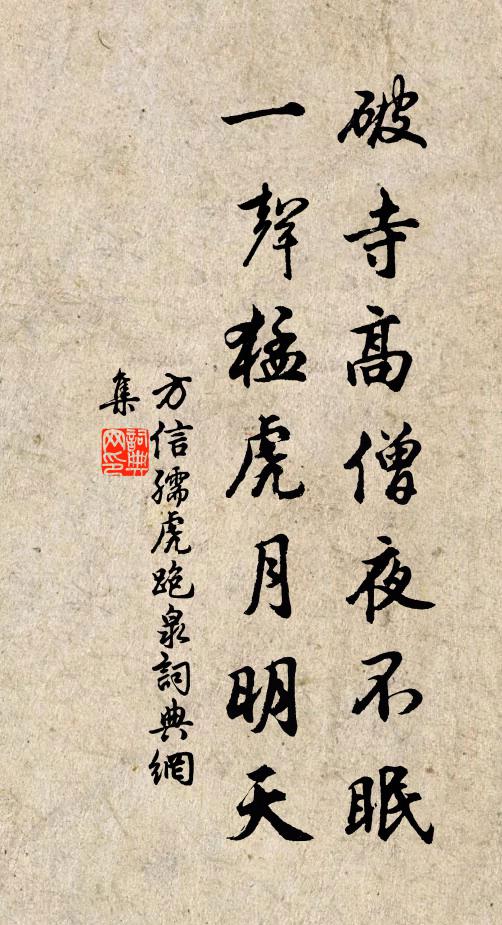 破寺高僧夜不眠
一聲猛虎月明天
方信孺虎跑泉詞典網
集
詞典网印